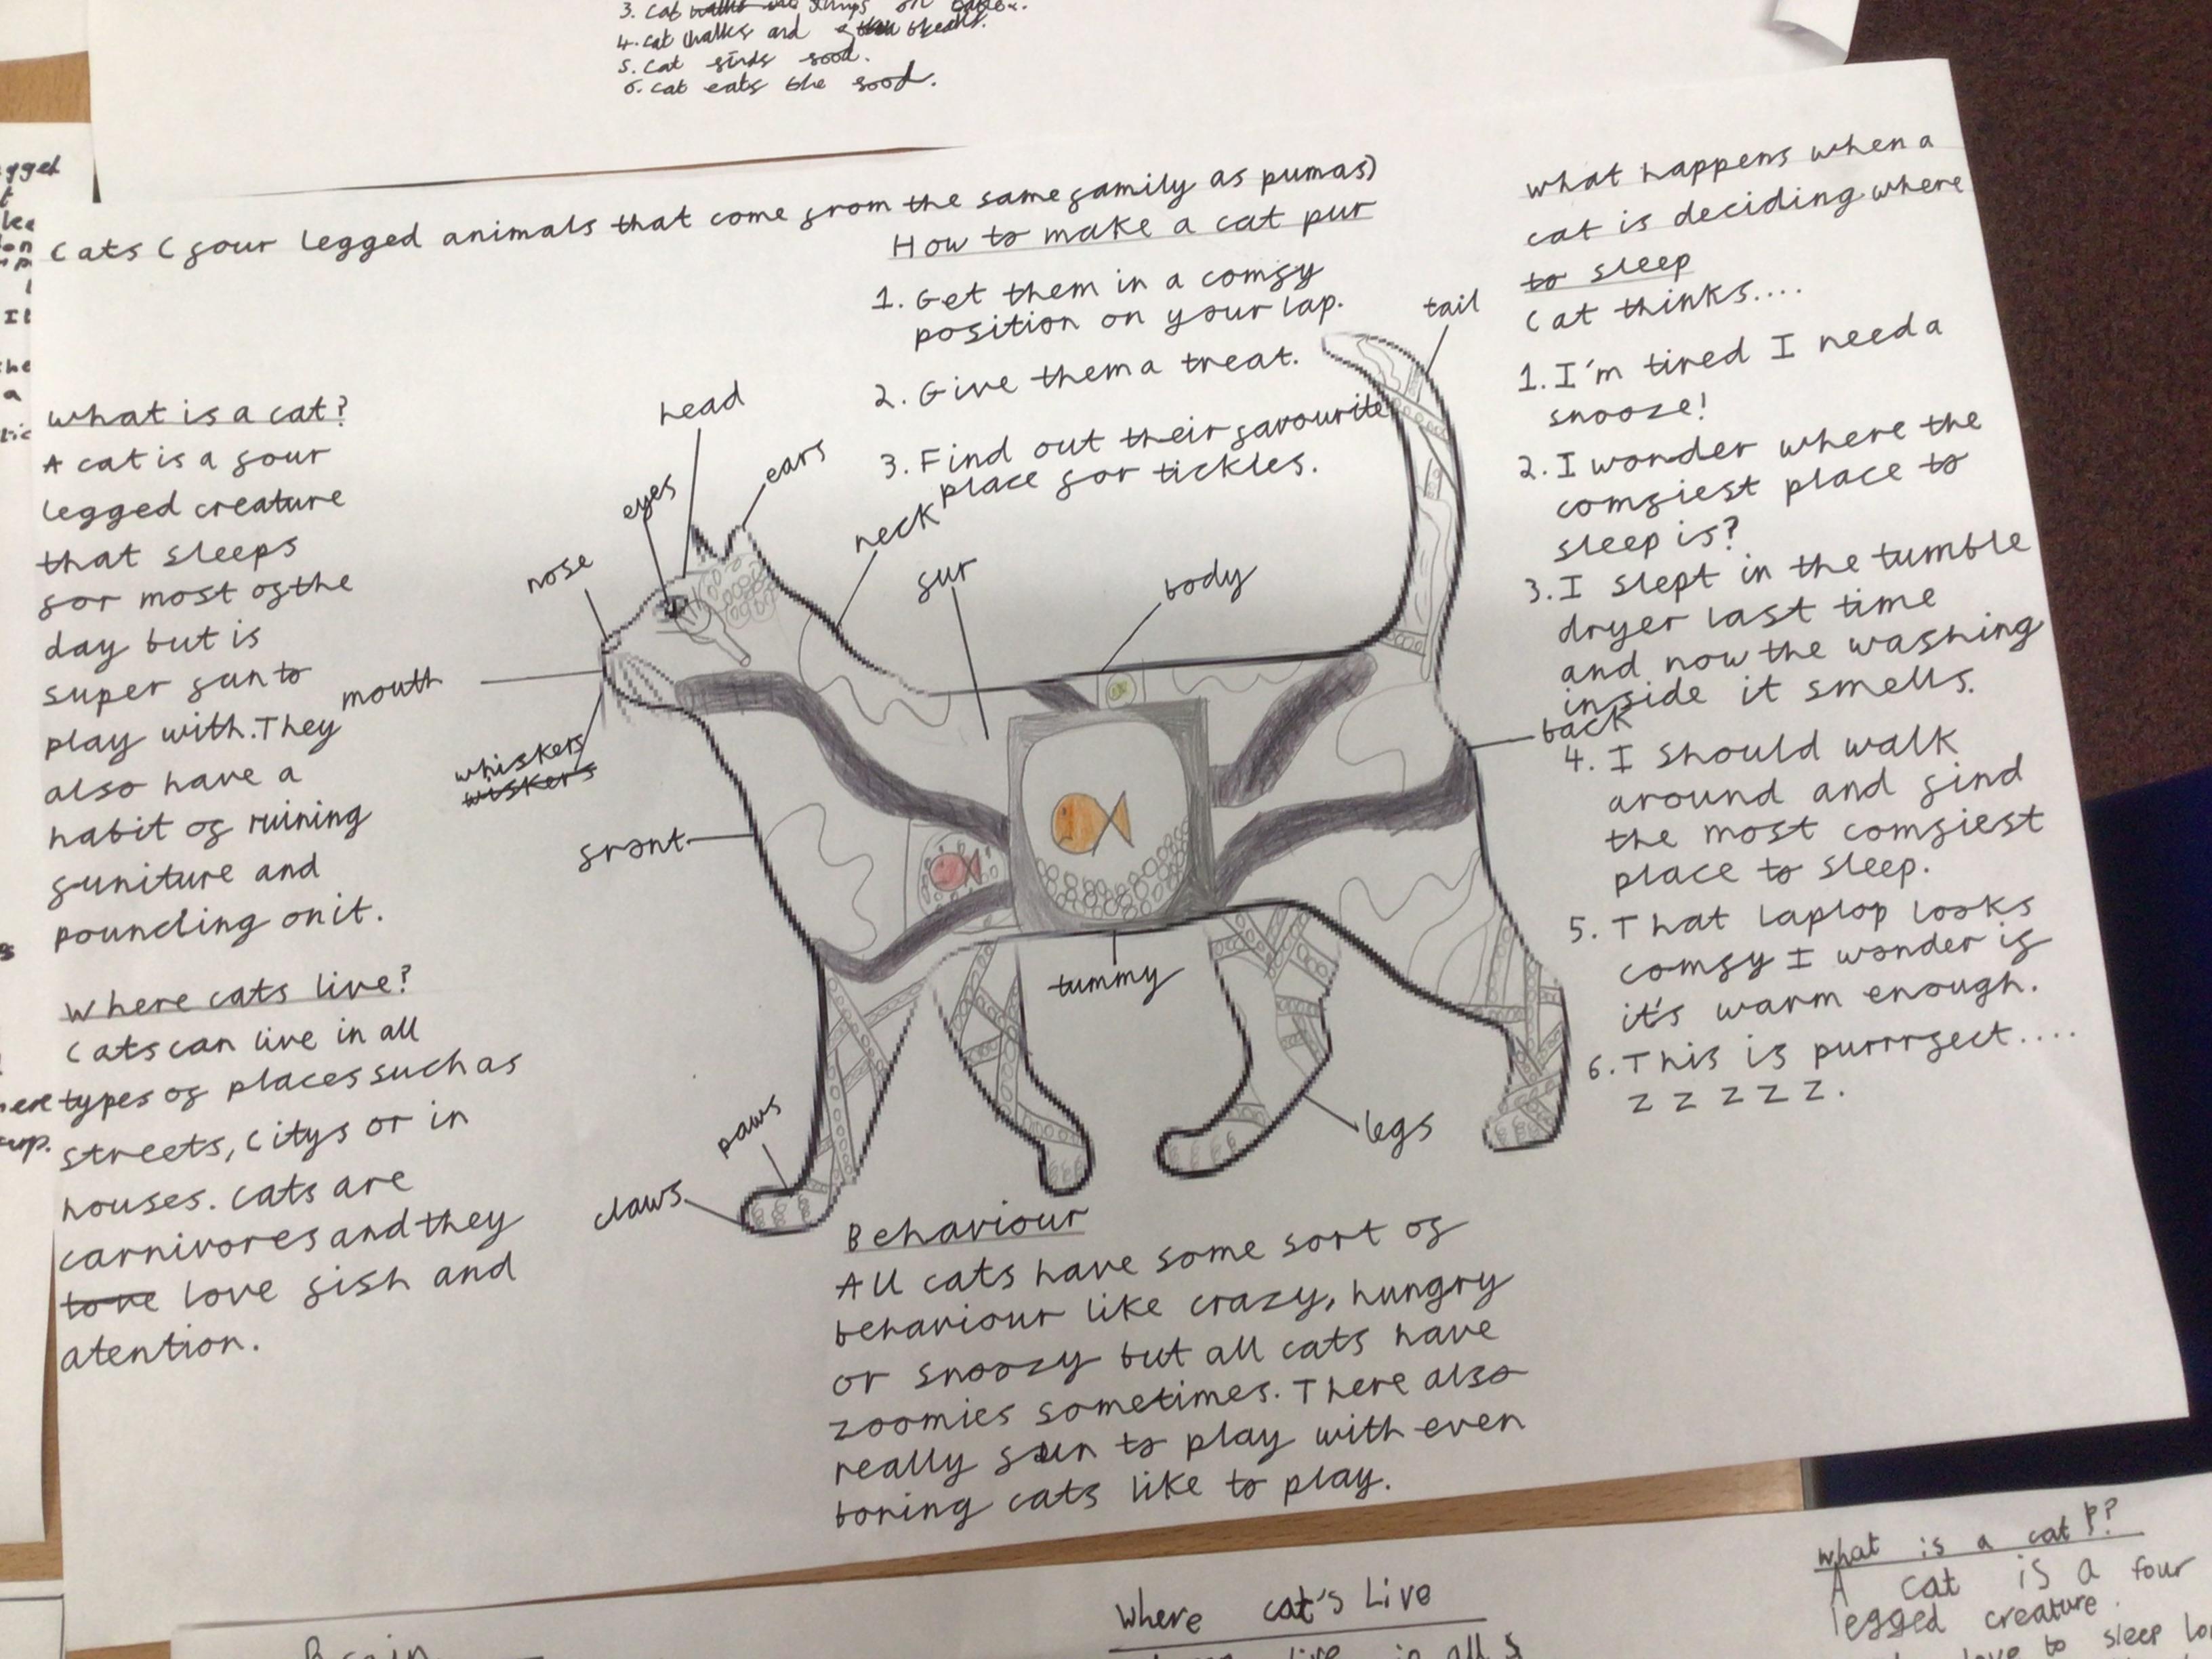 4. cat walks and breaths.
5. cat finds food.
6. cat eats the food.
Cats (four legged animals that come from the same family as pumas)
What is a cat?
A cat is a four
legged creature
that sleeps
for most of the
day but is
super fun to
play with. They
also have a
habit of ruining
funiture and
pouncling on it.
Where cats live?
Cats can live in all
types of places such as
streets, citys or in
houses. cats are
carnivores and they
love love fish and
atention.
How to make a cat pur
1. Get them in a comfy
position on your lap.
2. Give them a treat.
3. Find out their favourite
place for tickles.
head
eyes
ears
nose
neck
fur
body
tail
mouth
whiskers
wiskers
front
back
tummy
paws
claws
legs
Behaviour
All cats have some sort of
behaviour like crazy, hungry
or snoozy but all cats have
zoomies sometimes. There also
really fun to play with even
boring cats like to play.
what happens when a
cat is deciding where
to sleep
Cat thinks....
1. I'm tired I need a
snooze!
2. I wonder where the
comfiest place to
sleep is?
3. I slept in the tumble
dryer last time
and now the washing
inside it smells.
4. I should walk
around and find
the most comfiest
place to sleep.
5. That laptop looks
comfy I wonder if
it's warm enough.
6. This is purrrfect....
z z z z z.
Where cat's Live
What is a cat?
A cat is a four
legged creature.
to sleep